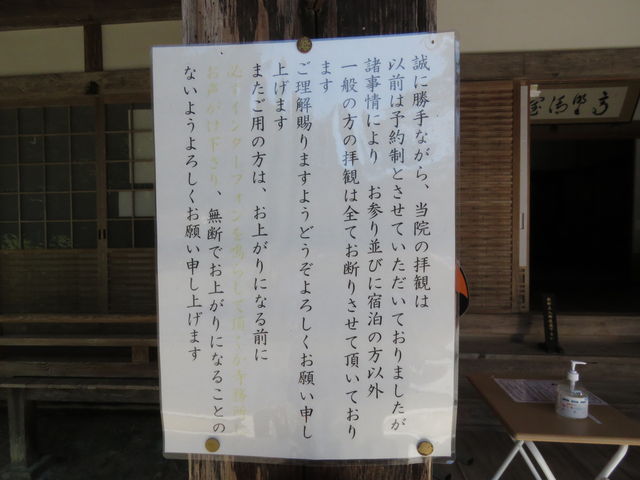 誠に勝手ながら、当院の拝観は
以前は予約制とさせていただいておりましたが
諸事情により　お参り並びに宿泊の方以外
一般の方の拝観は全てお断りさせて頂いており
ます
ご理解賜りますようどうぞよろしくお願い申し
上げます
またご用の方は、お上がりになる前に
必ずインターフォンを鳴らして頂くか寺務所
お声がけ下さり、無断でお上がりになることの
ないようよろしくお願い申し上げます